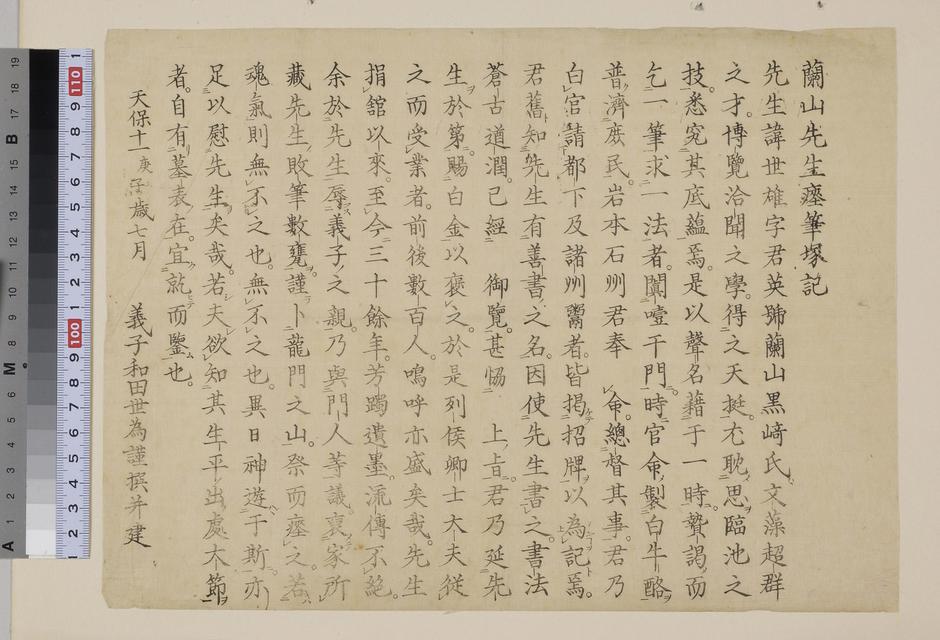 蘭山先生瘞筆塚記
先生諱世雄字君英號蘭山黒﨑氏文藻超群
之才。博覽洽聞之學。得之天挺。尤耽思臨池之
技。悉究其底蘊焉。是以聲名藉于一時。贄謁而
乞一筆求一法者。闐噎于門。時官命製白牛酪
普濟庶民。岩本石州君奉 命總督其事。君乃
白官請都下及諸州鬻者。皆掲招牌以為記焉。
君舊知先生有善書之名。因使先生書之。書法
蒼古遒潤。已經 御覽。甚愜 上旨。君乃延先
生於第。賜白金以褒之。於是列侯卿士大夫從
之而受業者。前後數百人。嗚呼亦盛矣哉。先生
捐舘以來。至今三十餘年。芳躅遺墨。流傳不絶。
余於先生辱義子之親。乃與門人等議。裒家所
藏先生敗筆數甕。謹卜龍門之山。祭而瘞之。若
魂氣則無不之也。無不之也。異日神遊于斯。亦
足以慰先生矣哉。若夫欲知其生平出處大節
者。自有墓表在。宜就而鑒也。
天保十一庚子歳七月 義子和田世為謹撰并建